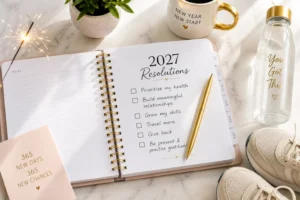 NEW YEAR
NEW START
2027
Resolutions
Prioritize my health
Build meaningful
relationships
Grow my skills
Travel more
Give back
Be present &
practice gratitude
You
Got
This
365
NEW DAYS.
365
NEW CHANCES.